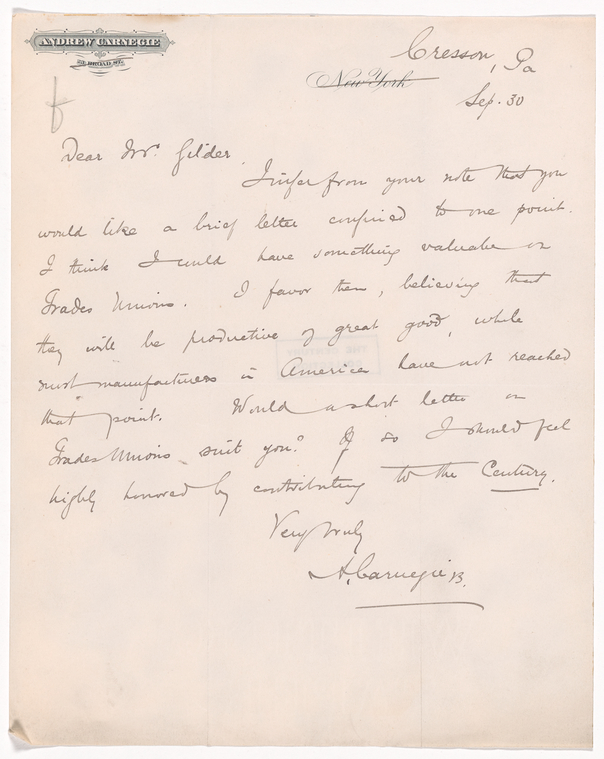 ANDREW CARNEGIE
BROAD ST.
Cresson, Pa
New York
Sep. 30
Dear Mr. Gilder
I infer from your note that you
would like a brief letter confined to one point.
I think I could have something valuable on
Trades Unions. I favor them, believing that
they will be productive of great good, while
most manufacturers in America have not reached
that point. Would a short letter on
Trades Unions suit you? If so I should feel
highly honored by contributing to the Century.
Very truly
A. Carnegie
THE CENTURY